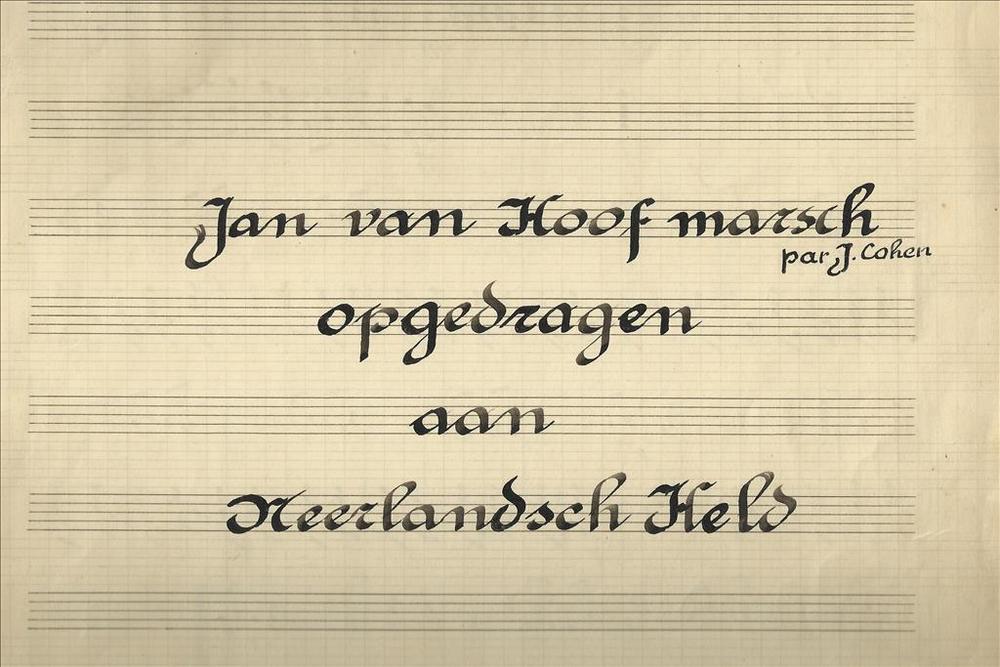 Jan van Hoof marsch
par J. Cohen
opgedragen
aan
Neerlandsch Held